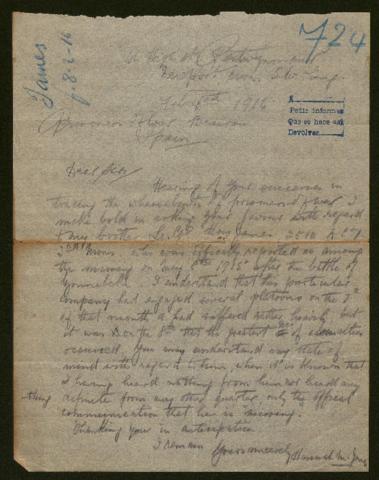 724
James
f. 8-2-16
Newport Mon.
Feb 1916
A
Pedir informes
Que se hace así
Devolver
Prisoners of War Bureau
Spain
Dear Sir
Hearing of your success in
tracing the whereabouts of prisoners of war I
make bold in asking your favour with regard
to my brother
Mons who was officially reported as among
the missing on May 8th 1915 after the battle of
I understand that this particular
company had engaged several platoons on the 7th
of that month & had suffered rather heavily but
it was on the 8th that the greatest of casualties
occurred. You may understand my state of
mind with regard to him, when it is known that
I having heard nothing from him nor heard any
thing definite from any other quarter only the official
communication that he is missing.
Thanking you in anticipation
I remain
Yours sincerely